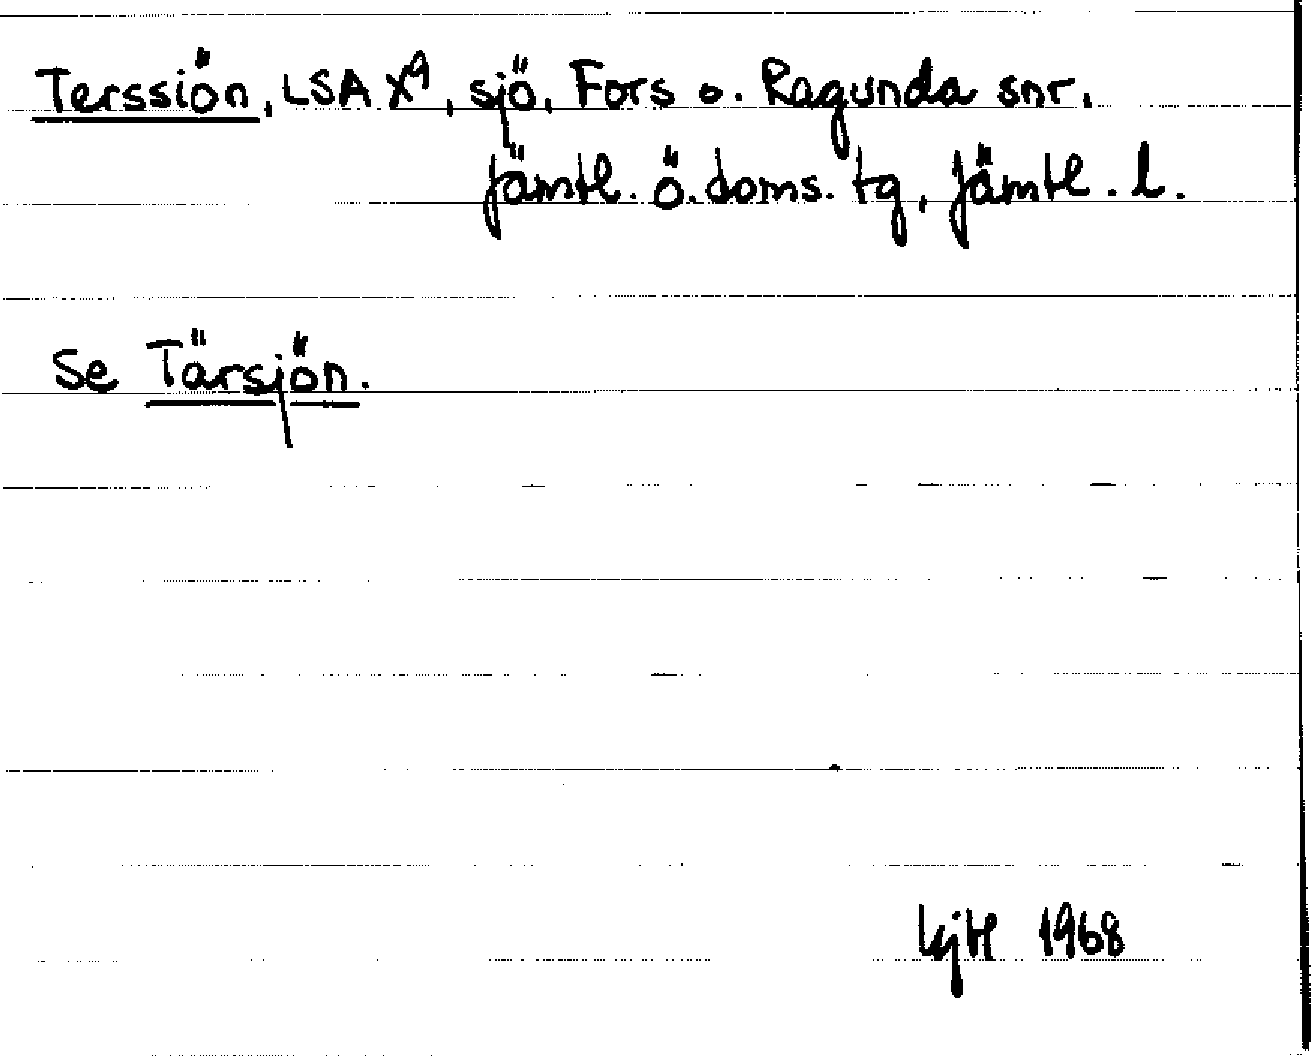 Terssiön, LSA X⁹, sjö, Fors o. Ragunda snr.
Jämtl. ö. doms. tg, Jämtl. l.
Se Tärsjön.
1968